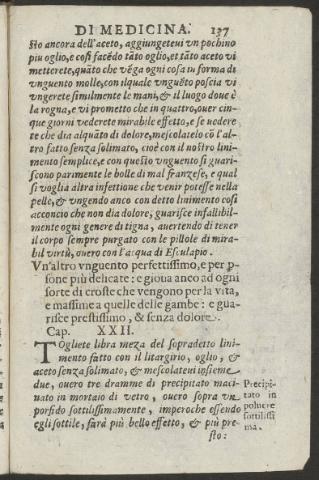 DI MEDICINA. 137
sto ancora dell'aceto, aggiungeteui vn pochino
piu oglio, e così facẽdo tãto oglio, et tãto aceto vi
metterete, quãto che vẽga ogni cosa in forma di
vnguento molle, con ilquale vnguẽto poscia vi
vngerete similmente le mani, & il luogo doue è
la rogna, e vi prometto che in quattro, ouer cin-
que giorni vederete mirabile effetto, e se uedere
te che dia alquãto di dolore, mescolatelo cõ l'al-
tro fatto senza solimato, cioè con il nostro lini-
mento semplice, e con questo vnguento si guari-
scono parimente le bolle di mal franzese, e qual
si voglia altra infettione che venir potesse nella
pelle, & vngendo anco con detto linimento così
acconcio che non dia dolore, guarisce infallibil-
mente ogni genere di tigna, auertendo di tener
il corpo sempre purgato con le pillole di mira-
bil virtù, ouero con l'acqua di Esculapio.
Vn'altro vnguento perfettissimo, e per p-
sone più delicate: e gioua anco ad ogni
sorte di croste che vengono per la vita,
e massime a quelle delle gambe: e gua-
risce prestissimo, & senza dolore.
Cap. XXII.
TOgliete libra meza del sopradetto lini-
mento fatto con il litargirio, oglio, &
aceto senza solimato, & mescolateui insieme
due, ouero tre dramme di precipitato maci-
nato in mortaio di vetro, ouero sopra vn
porfido sottilissimamente, imperoche essendo
egli sottile, farà più bello effetto, & più pre-
sto:
Precipi-
tato in
poluere
sottilissi
ma.